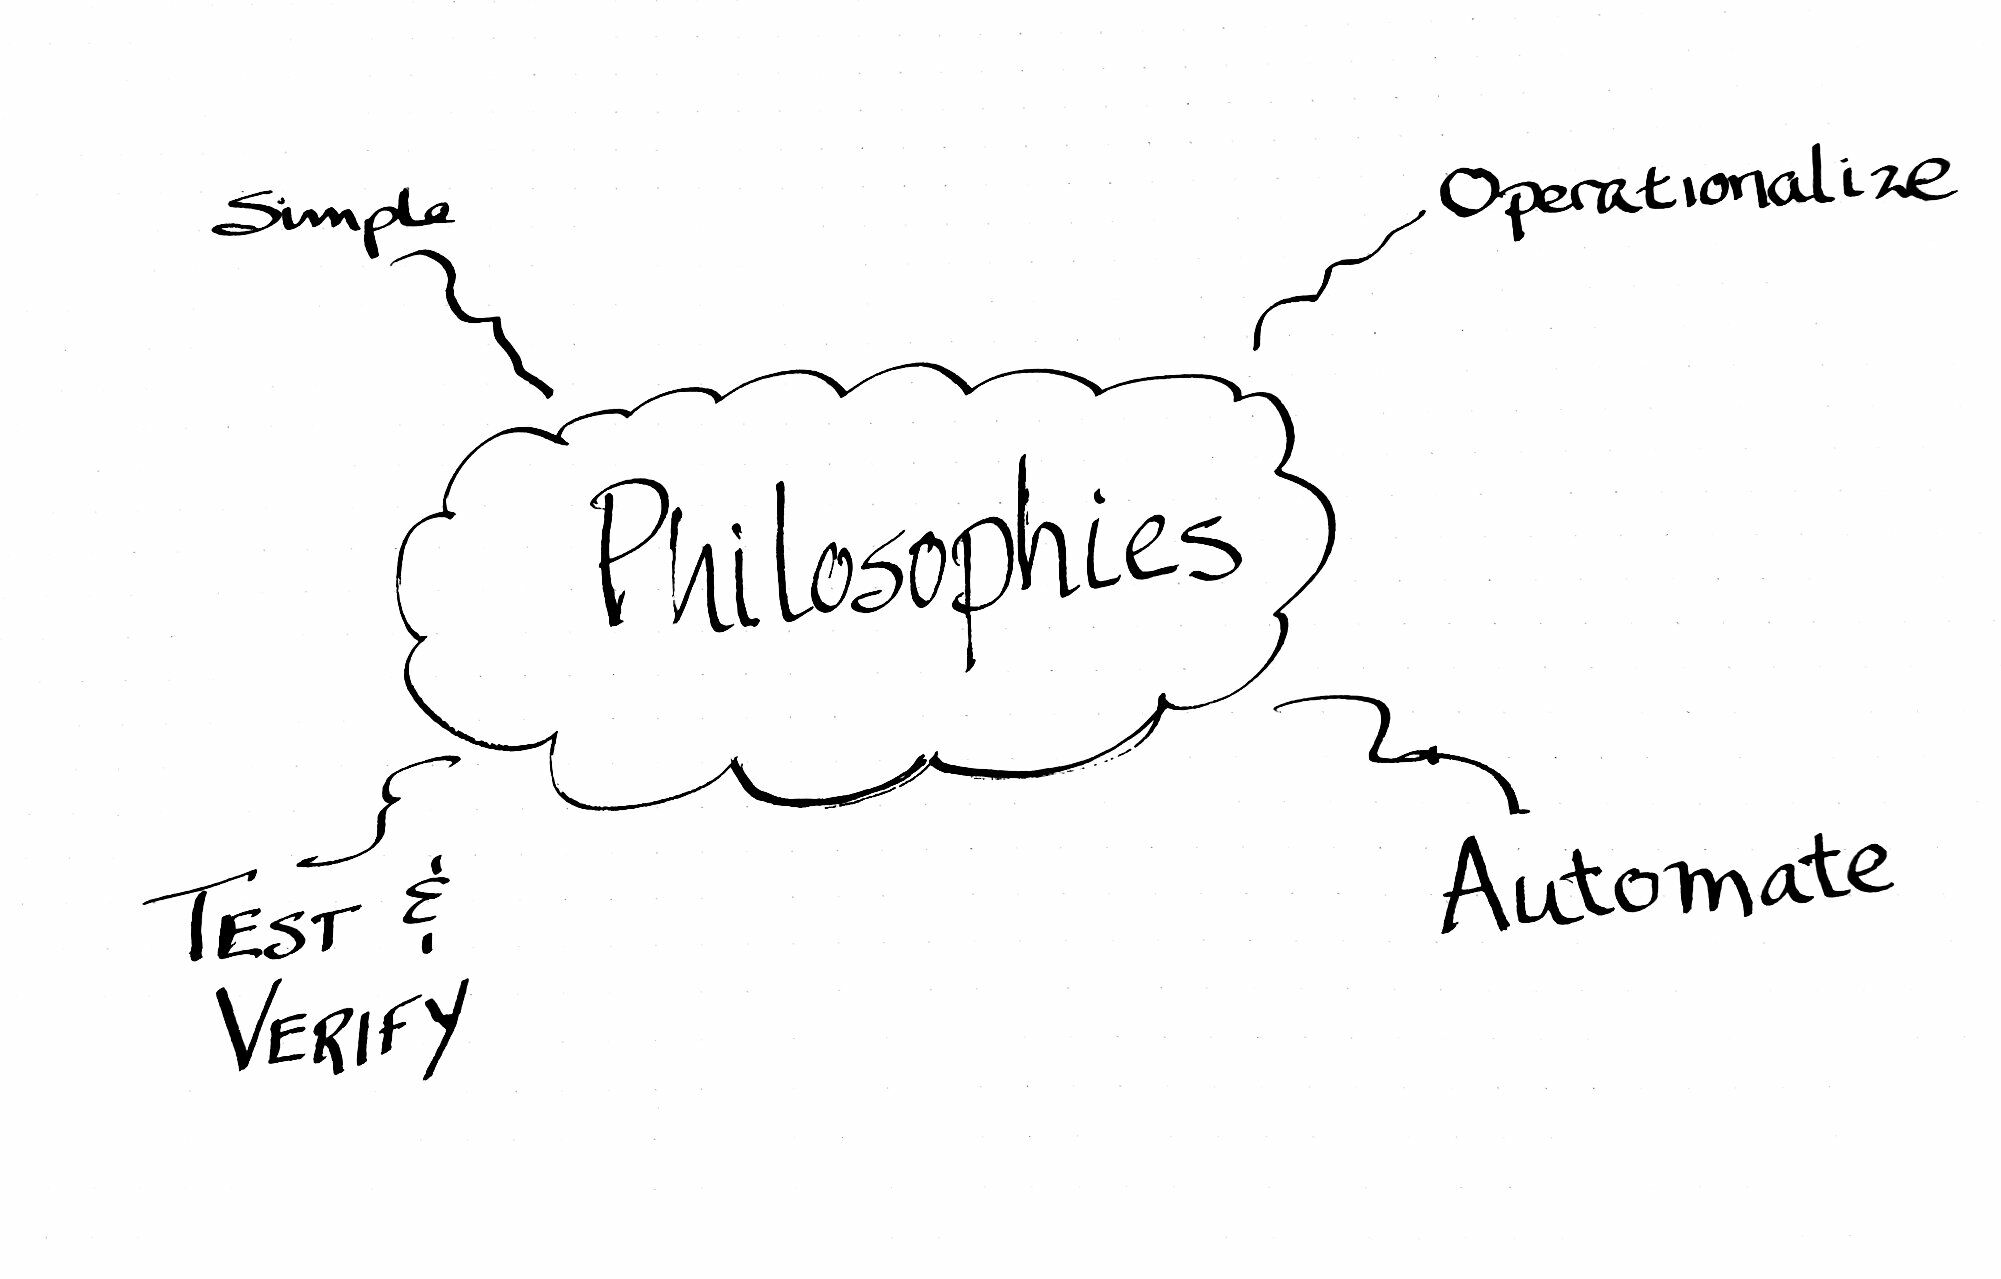 Simple
Operationalize
Philosophies
TEST &
VERIFY
Automate